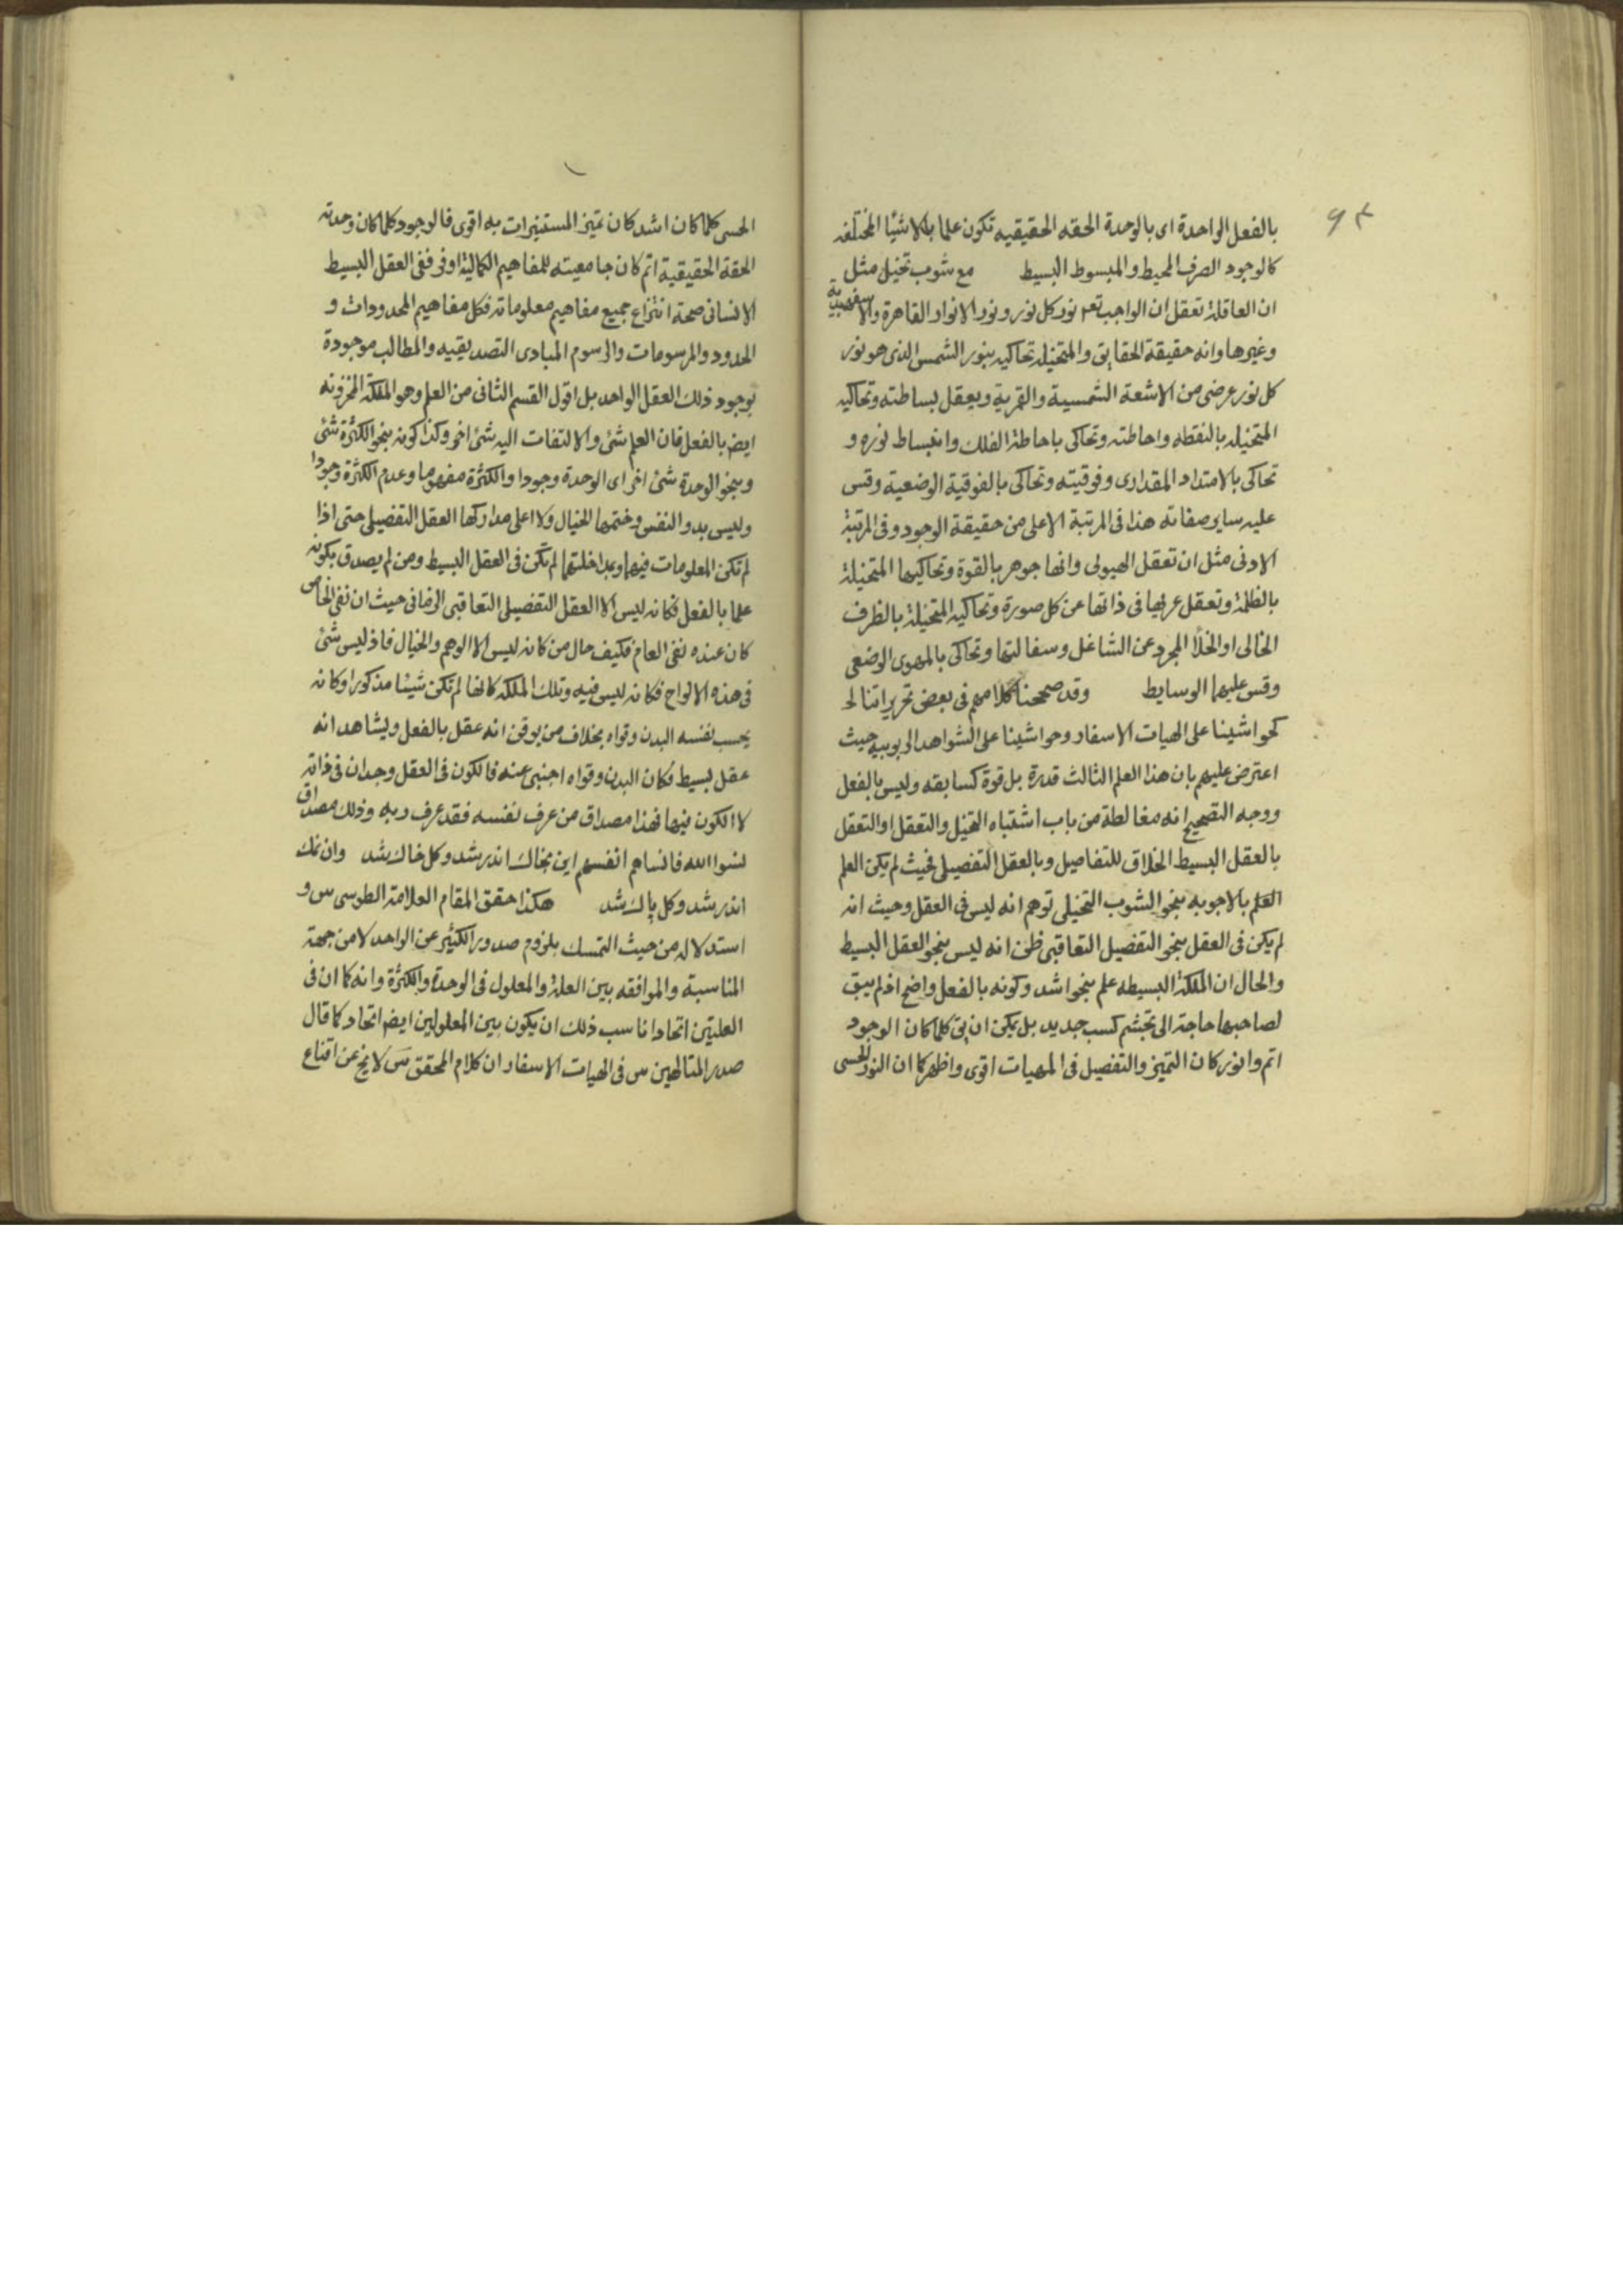 ٩٣
بالفعل الواحدة اى بالوحدة الحقه الحقيقيه تكون علما بالاشيا المختلفه
كالوجود الصرف المحيط والمبسوط البسيط مع شوب تخيل مثل
ان العاقلة تعقل ان الواجب تعه نور كل نور ونور الانوار القاهرة والاسفهبدية
وغيرها وانه حقيقة الحقايق والمتخيلة تحاكيه بنور الشمس الذى هو نور
كل نور عرضى من الاشعة الشمسية والقمرية ويعقل بساطته وتحاكيه
المتخيله بالنقطه واحاطته وتحاكى باحاطة الفلك وانبساط نوره و
تحاكى بالامتداد المقدارى وفوقيته وتحاكى بالفوقية الوضعية وقس
عليه ساير صفاته هذا فى المرتبة الاعلى من حقيقة الوجود وفى المرتبة
الادنى مثل ان تعقل الهيولى وانها جوهر بالقوة وتحاكيها المتخيلة
بالظلمة وتعقل عريها فى ذاتها عن كل صورة وتحاكيه المتخيلة بالظرف
الخالى او الخلأ المجرد عن الشاغل وسفالتها وتحاكى بالمهوى الوضعى
وقس عليهما الوسايط وقد صححنا كلامهم فى بعض تحريراتنا
كحواشينا على الهيات الاسفار وحواشينا على الشواهد الربوبيه حيث
اعترض عليهم بان هذا العلم الثالث قدرة بل قوة كسابقه وليس بالفعل
ووجه التصحيح انه مغالطة من باب اشتباه التخيل والتعقل او التعقل
بالعقل البسيط الخلاق للتفاصيل وبالعقل التفصيلى فحيث لم يكن العلم
العلم بالاجوبه بنحو الشوب التخيلى توهم انه ليس فى العقل وحيث انه
لم يكن فى العقل بنحو التفصيل التعاقبى ظن انه ليس بنحو العقل البسيط
والحال ان الملكة البسيطه علم بنحو اشد وكونه بالفعل واضح اذ لم يبق
لصاحبها حاجة الى تجشم كسب جديد بل يمكن ان يق كلما كان الوجود
اتم وانور كان التميز والتفصيل فى المهيات اقوى واظهر كما ان النور الحسى
الحسى كلما كان اشد كان تميز المستنيرات به اقوى فالوجود كلما كان وحدته
الحقة الحقيقية اتم كان جامعيته للمفاهيم الكمالية اوفر ففى العقل البسيط
الانسانى صحة انتزاع جميع مفاهيم معلوماته فكل مفاهيم المحدودات و
الحدود والمرسومات والرسوم المبادى التصديقيه والمطالب موجودة
بوجود ذلك العقل الواحد بل اقول القسم الثانى من العلم وهو الملكة المخزونه
ايض بالفعل فان العلم شئ والالتفات اليه شئ اخر وكذا كونه بنحو الكثرة شئ
وبنحو الوحدة شئ اخر اى الوحدة وجودا والكثرة مفهوما وعدم الكثرة وجودا
وليس بدو النفس وختمها الخيال ولا اعلى مداركها العقل التفصيلى حتى اذا
لم تكن المعلومات فيهما وبمداخلتهما لم تكن فى العقل البسيط ومن لم يصدق بكونه
علما بالفعل فكانه ليس الا العقل التفصيلى التعاقبى الزمانى حيث ان نفى الخاص
كان عنده نفى العام فكيف حال من كانه ليس الا الوهم والخيال فاذ ليس شئ
فى هذه الالواح فكانه ليس فيه وتلك الملكه كانها لم تكن شيئا مذكورا وكانه
يحسب نفسه البدن وقواه بخلاف من يوقن انه عقل بالفعل ويشاهد انه
عقل بسيط فكان البدن وقواه اجنبى عنه فالكون فى العقل وجدان فى ذاته
لا الكون فيها فهذا مصداق من عرف نفسه فقد عرف ربه وذلك مصداق
نسوا الله فانساهم انفسهم اين بخاك اندر شد وكل خاك شد وان نمك
اندر شد وكل پاك شد هكذا حقق المقام العلامة الطوسى س و
استدلاله من حيث التمسك بلزوم صدور الكثير عن الواحد لا من جهة
المناسبة والموافقه بين العلة والمعلول فى الوحدة والكثرة وانه كما ان فى
العلتين اتحادا ناسب ذلك ان يكون بين المعلولين ايض اتحاد كما قال
صدر المتالهين س فى الهيات الاسفار ان كلام المحقق س لا يخ عن اقناع